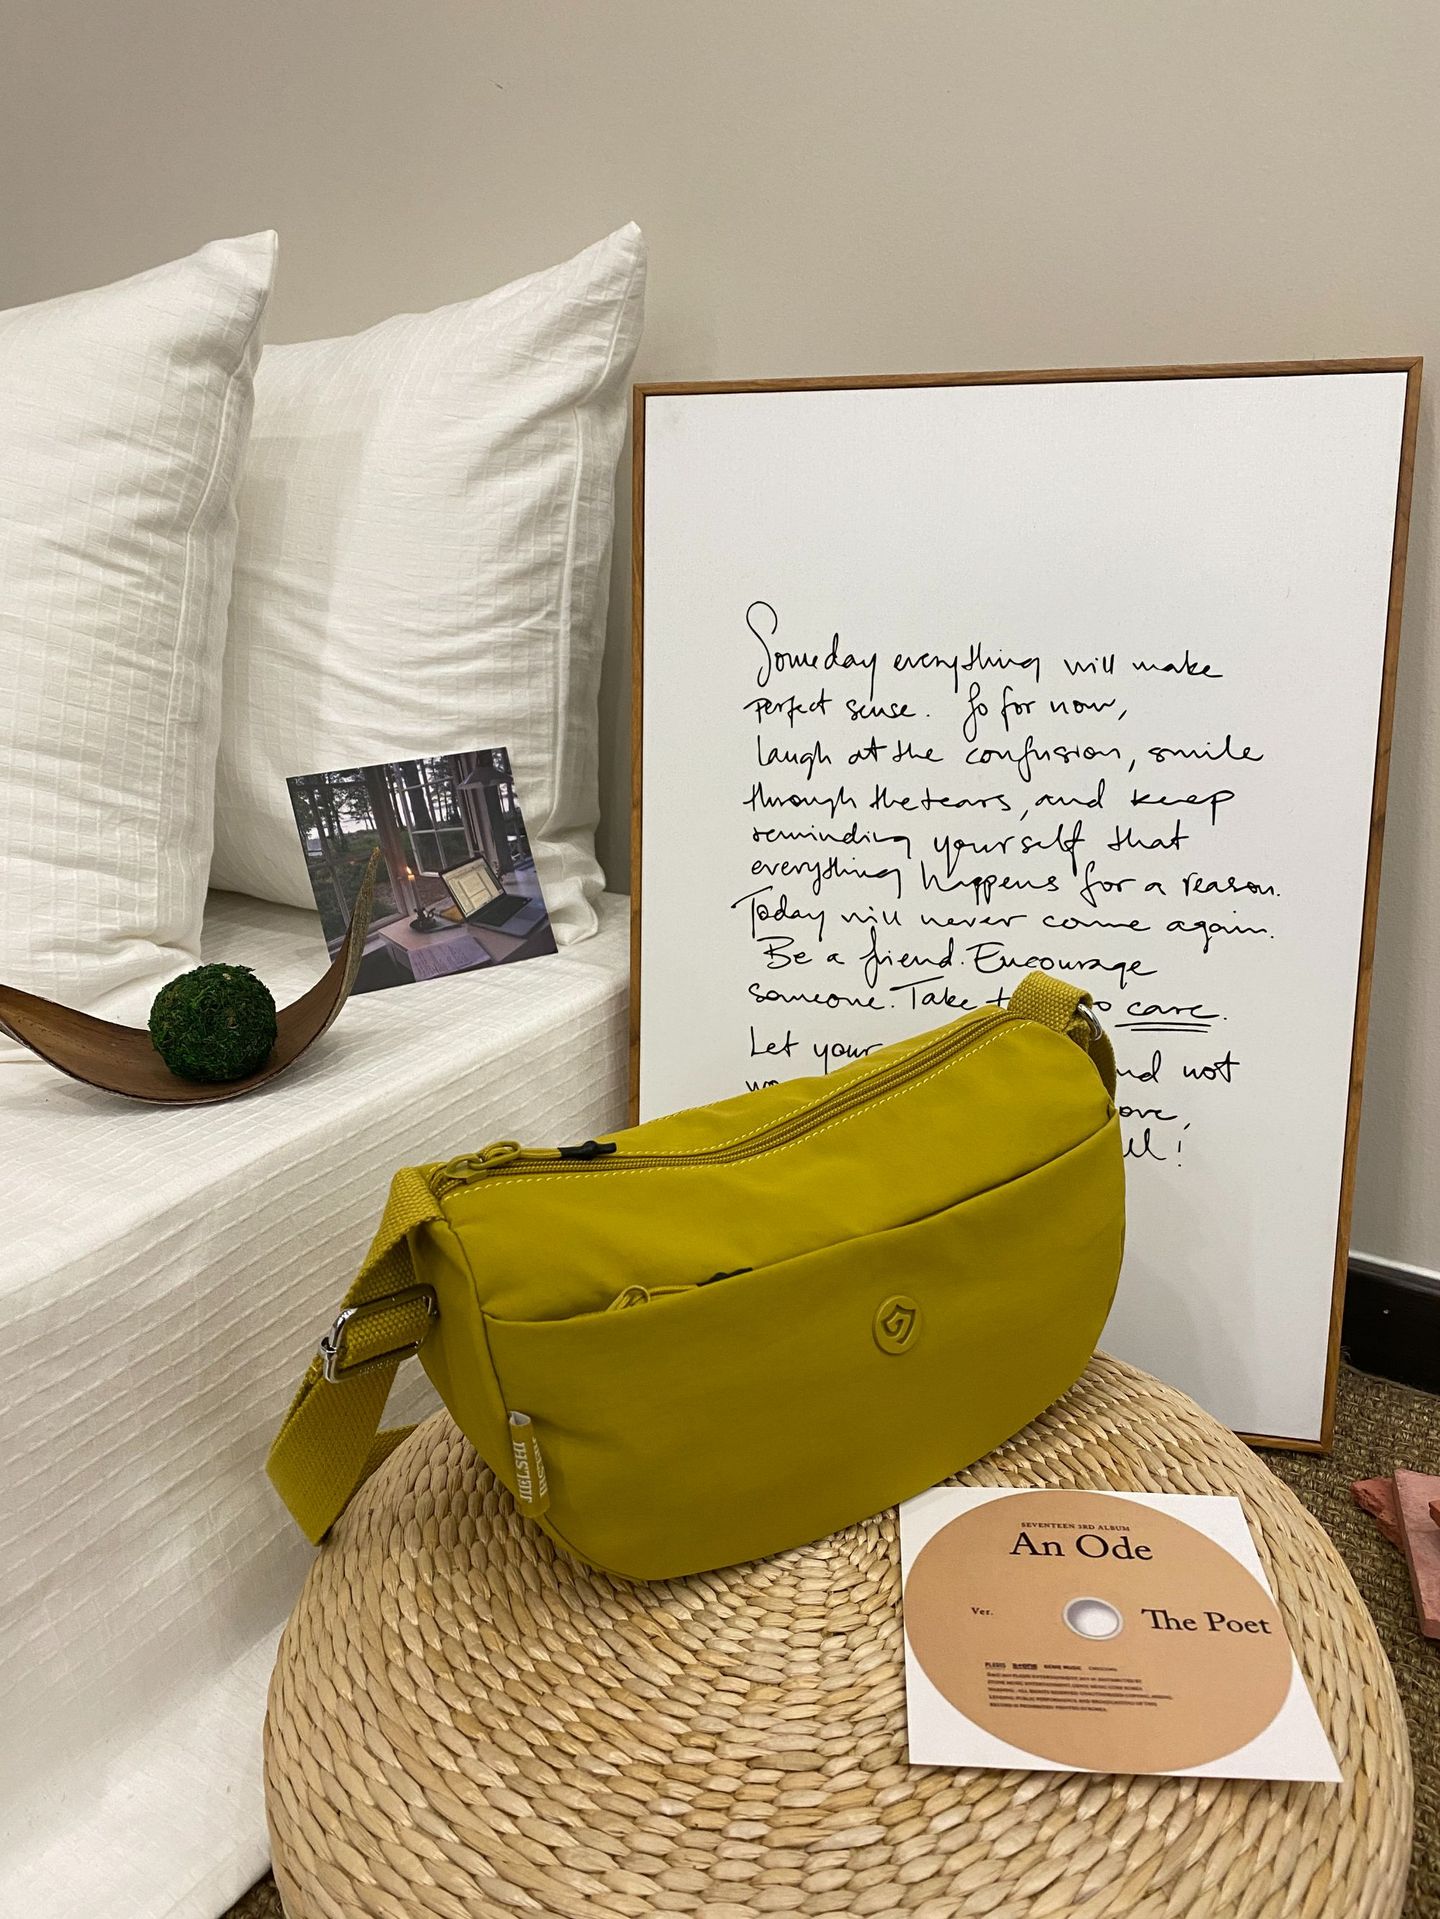 Someday everything will make
perfect sense. So for now,
laugh at the confusion, smile
through the tears, and keep
reminding yourself that
everything happens for a reason.
Today will never come again.
Be a friend. Encourage
someone. Take
care.
Let your
nd not
ove,
ll!
JIELSHI
SEVENTEEN 3RD ALBUM
An Ode
Ver.
The Poet
PLEDIS GENIE MUSIC